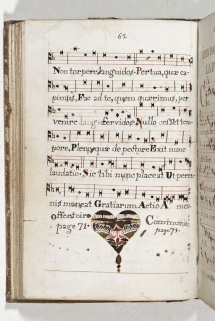 62.
Non torpere languidos. Per tua, quæ ca-
pimus, Fac ad te, quem quærimus, per
venire languidos. Nullo cesset tem-
pore, Plenoque de pectore Exit nunc
laudatio. Sic tibi nunc placeat Ut peren-
nis maneat Gratiarum Actio A
offertoire
page 71.
Communion
page 71.